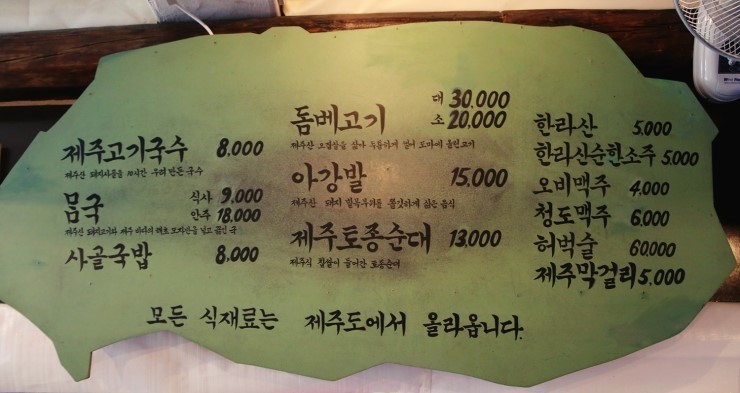 제주고기국수 8,000
제주산 돼지사골을 10시간 우려 만든 국수
몸국 식사 9,000
안주 18,000
제주산 돼지고기와 제주 바다의 해초 모자반을 넣고 끓인 국
사골국밥 8,000
돔베고기 대 30,000
소 20,000
제주산 오겹살을 삶아 도마에 올린고기
아강발 15,000
제주산 돼지 발목부위를 쫄깃하게 삶은 음식
제주토종순대 13,000
제주식 찹쌀이 들어간 토종순대
한라산 5,000
한라산순한소주 5,000
오비맥주 4,000
청도맥주 6,000
허벅술 60,000
제주막걸리 5,000
모든 식재료는 제주도에서 올라옵니다.